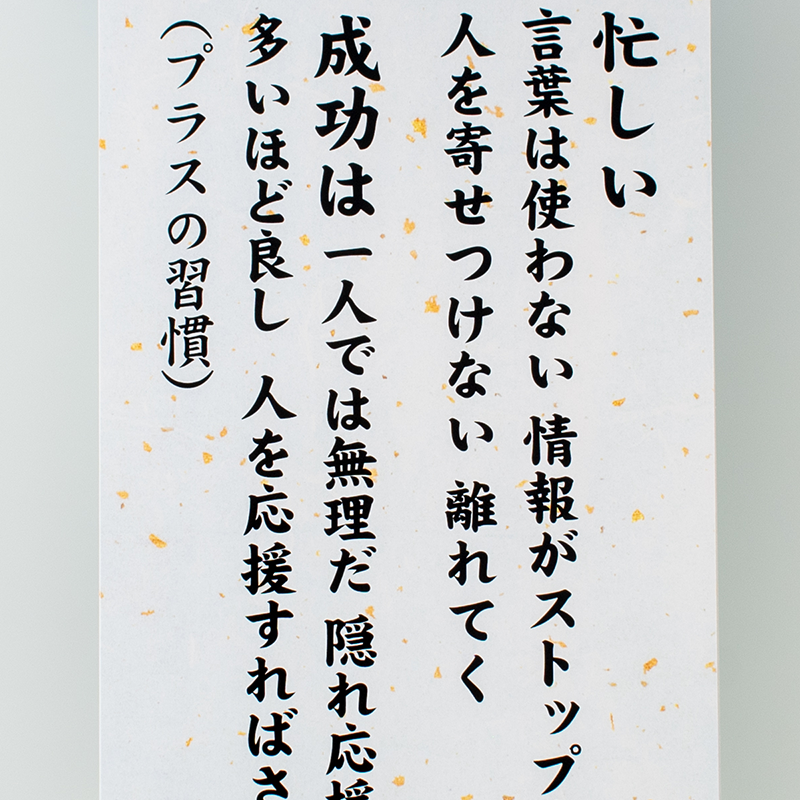 忙しい
言葉は使わない 情報がストップ
人を寄せつけない 離れてく
成功は一人では無理だ 隠れ応援
多いほど良し 人を応援すればさ
（プラスの習慣）